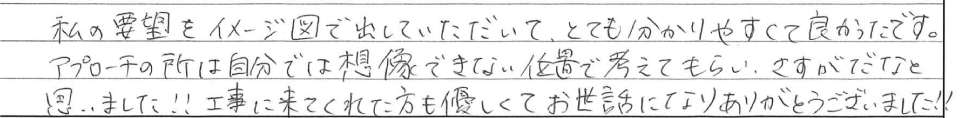 私の要望をイメージ図で出していただいて、とても分かりやすくて良かったです。
アプローチの所は自分では想像できない位置で考えてもらい、さすがだなと
思いました!! 工事に来てくれた方も優しくてお世話になりありがとうございました!!